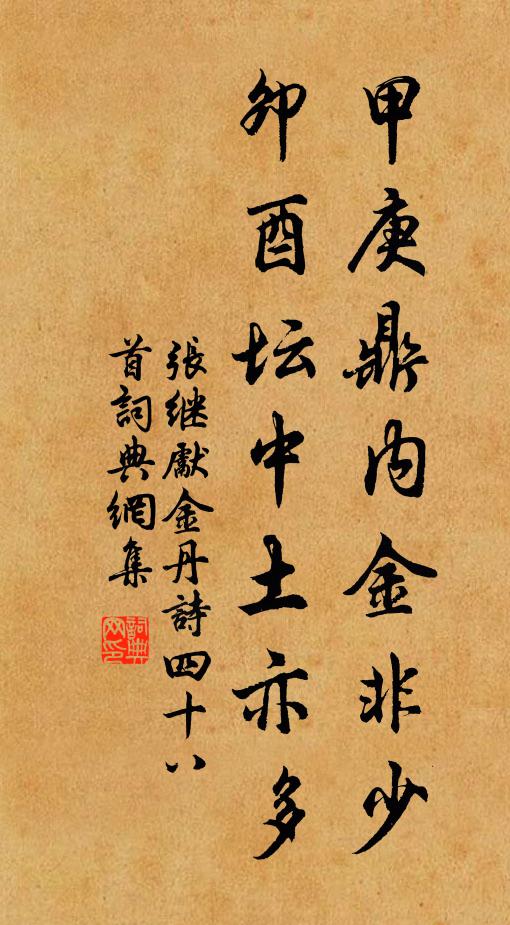 甲庚鼎内金非少
卯酉坛中土亦多
張继獻金丹詩四十八
首詞典網集
詞典网印